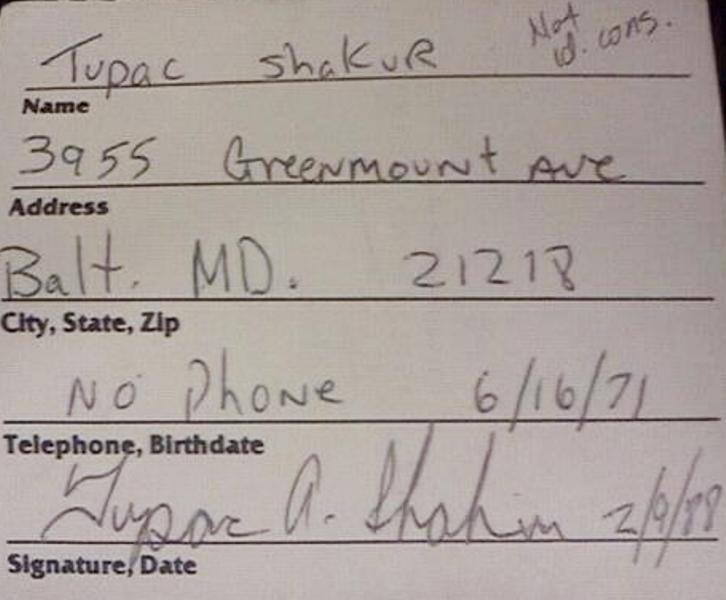 Tupac Shakur
Not
id. cons.
Name
3955 Greenmount Ave
Address
Balt. MD. 21218
City, State, Zip
No Phone 6/16/71
Telephone, Birthdate
Tupac A. Shakur 2/9/88
Signature, Date